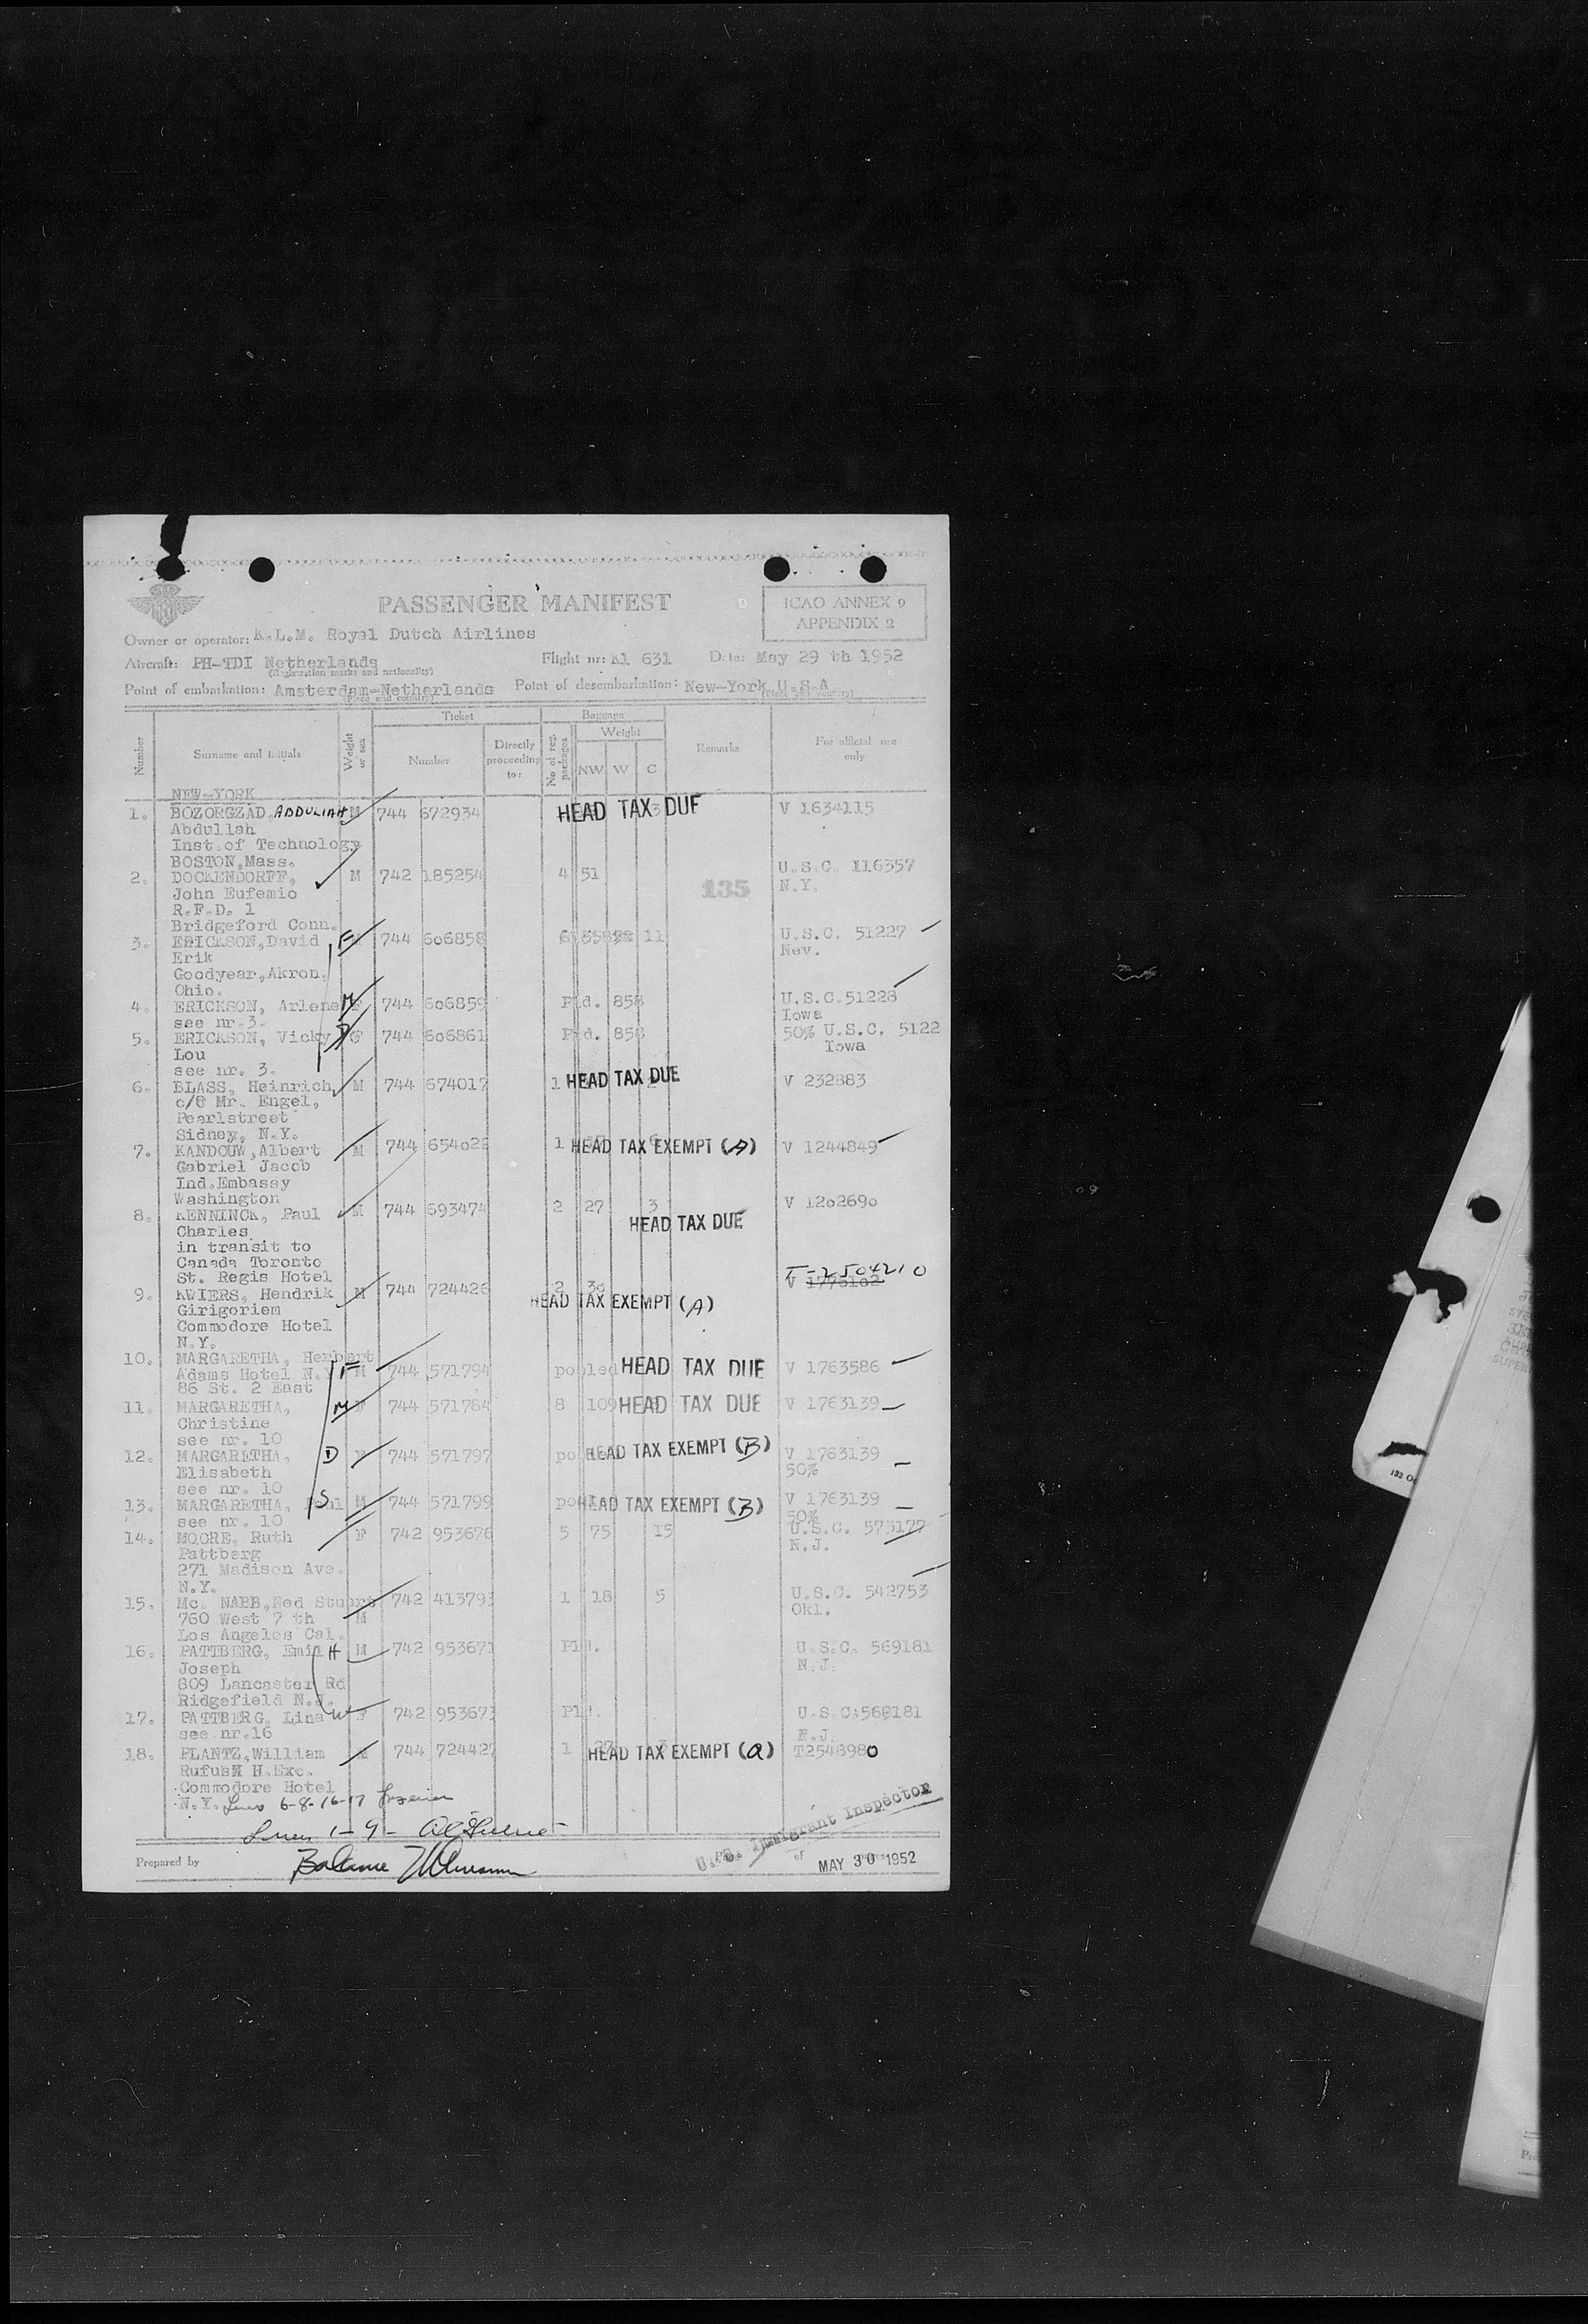 PASSENGER MANIFEST
ICAO ANNEX 9
APPENDIX 2
Owner or operator: K.L.M. Royal Dutch Airlines
Aircraft: PH-TDI Netherlands Flight nr: Kl 631 Date: May 29 th 1952
(Registration marks and nationality)
Point of embarkation: Amsterdam-Netherlands Point of desembarkation: New-York U.S.A
(Place and country) (Place and country)
Ticket Baggage
Number Surname and initials Weight or sex Number Directly proceeding to: No of reg. packages Weight NW W C Remarks For official use only
NEW-YORK
1. BOZORGZAD, ABDULLAH M 744 672934 HEAD TAX DUE V 1634115
Abdullah
Inst.of Technology
BOSTON,Mass.
2. DOCKENDORFF, M 742 185254 4 51 U.S.C. 116357
John Eufemio 135 N.Y.
R.F.D. 1
Bridgeford Conn.
3. ERICKSON,David F 744 606858 11 U.S.C. 51227
Erik Nev.
Goodyear,Akron,
Ohio.
4. ERICKSON, Arlene M F 744 606859 Pld. 858 U.S.C.51228
see nr.3. Iowa
5. ERICKSON, Vicky D F 744 606861 Pld. 858 50% U.S.C. 5122
Lou Iowa
see nr. 3.
6. BLASS, Heinrich, M 744 674017 1 HEAD TAX DUE V 232883
c/o Mr. Engel,
Pearlstreet
Sidney, N.Y.
7. KANDOUW,Albert M 744 654022 1 HEAD TAX EXEMPT (A) V 1244849
Gabriel Jacob
Ind.Embassy
Washington
8. KENNINCK, Paul M 744 693474 2 27 3 V 1202690
Charles HEAD TAX DUE
in transit to
Canada Toronto
St. Regis Hotel T-2504210
9. KWIERS, Hendrik M 744 724426 2 30 V 1775102
Girigoriem HEAD TAX EXEMPT (A)
Commodore Hotel
N.Y.
10. MARGARETHA, Herbert
Adams Hotel N.Y F M 744 571794 pooled HEAD TAX DUE V 1763586
86 St. 2 East
11. MARGARETHA, M F 744 571784 8 109 HEAD TAX DUE V 1763139
Christine
see nr. 10
12. MARGARETHA, D F 744 571797 HEAD TAX EXEMPT (B) V 1763139
Elisabeth 50%
see nr. 10
13. MARGARETHA, S M 744 571799 HEAD TAX EXEMPT (B) V 1763139
see nr. 10 50%
14. MOORE, Ruth F 742 953676 5 75 15 U.S.C. 573177
Pattberg N.J.
271 Madison Ave.
N.Y.
15. Mc. NABB,Ned Stuart 742 413793 1 18 5 U.S.C. 542753
760 West 7 th M Okl.
Los Angelos Cal.
16. PATTBERG, Emil H M 742 953671 Pld. U.S.C. 569181
Joseph N.J.
809 Lancaster Rd
Ridgefield N.J.
17. PATTBERG, Lina W F 742 953673 Pld. U.S.C.569181
see nr.16 N.J.
18. PLANTZ,William M 744 724427 1 27 HEAD TAX EXEMPT (a) T2548980
Rufus H.Exc.
Commodore Hotel
N.Y. Lines 6-8-16-17
Lines 1-9-
U.S. Immigrant Inspector
Prepared by Balance of MAY 30 1952